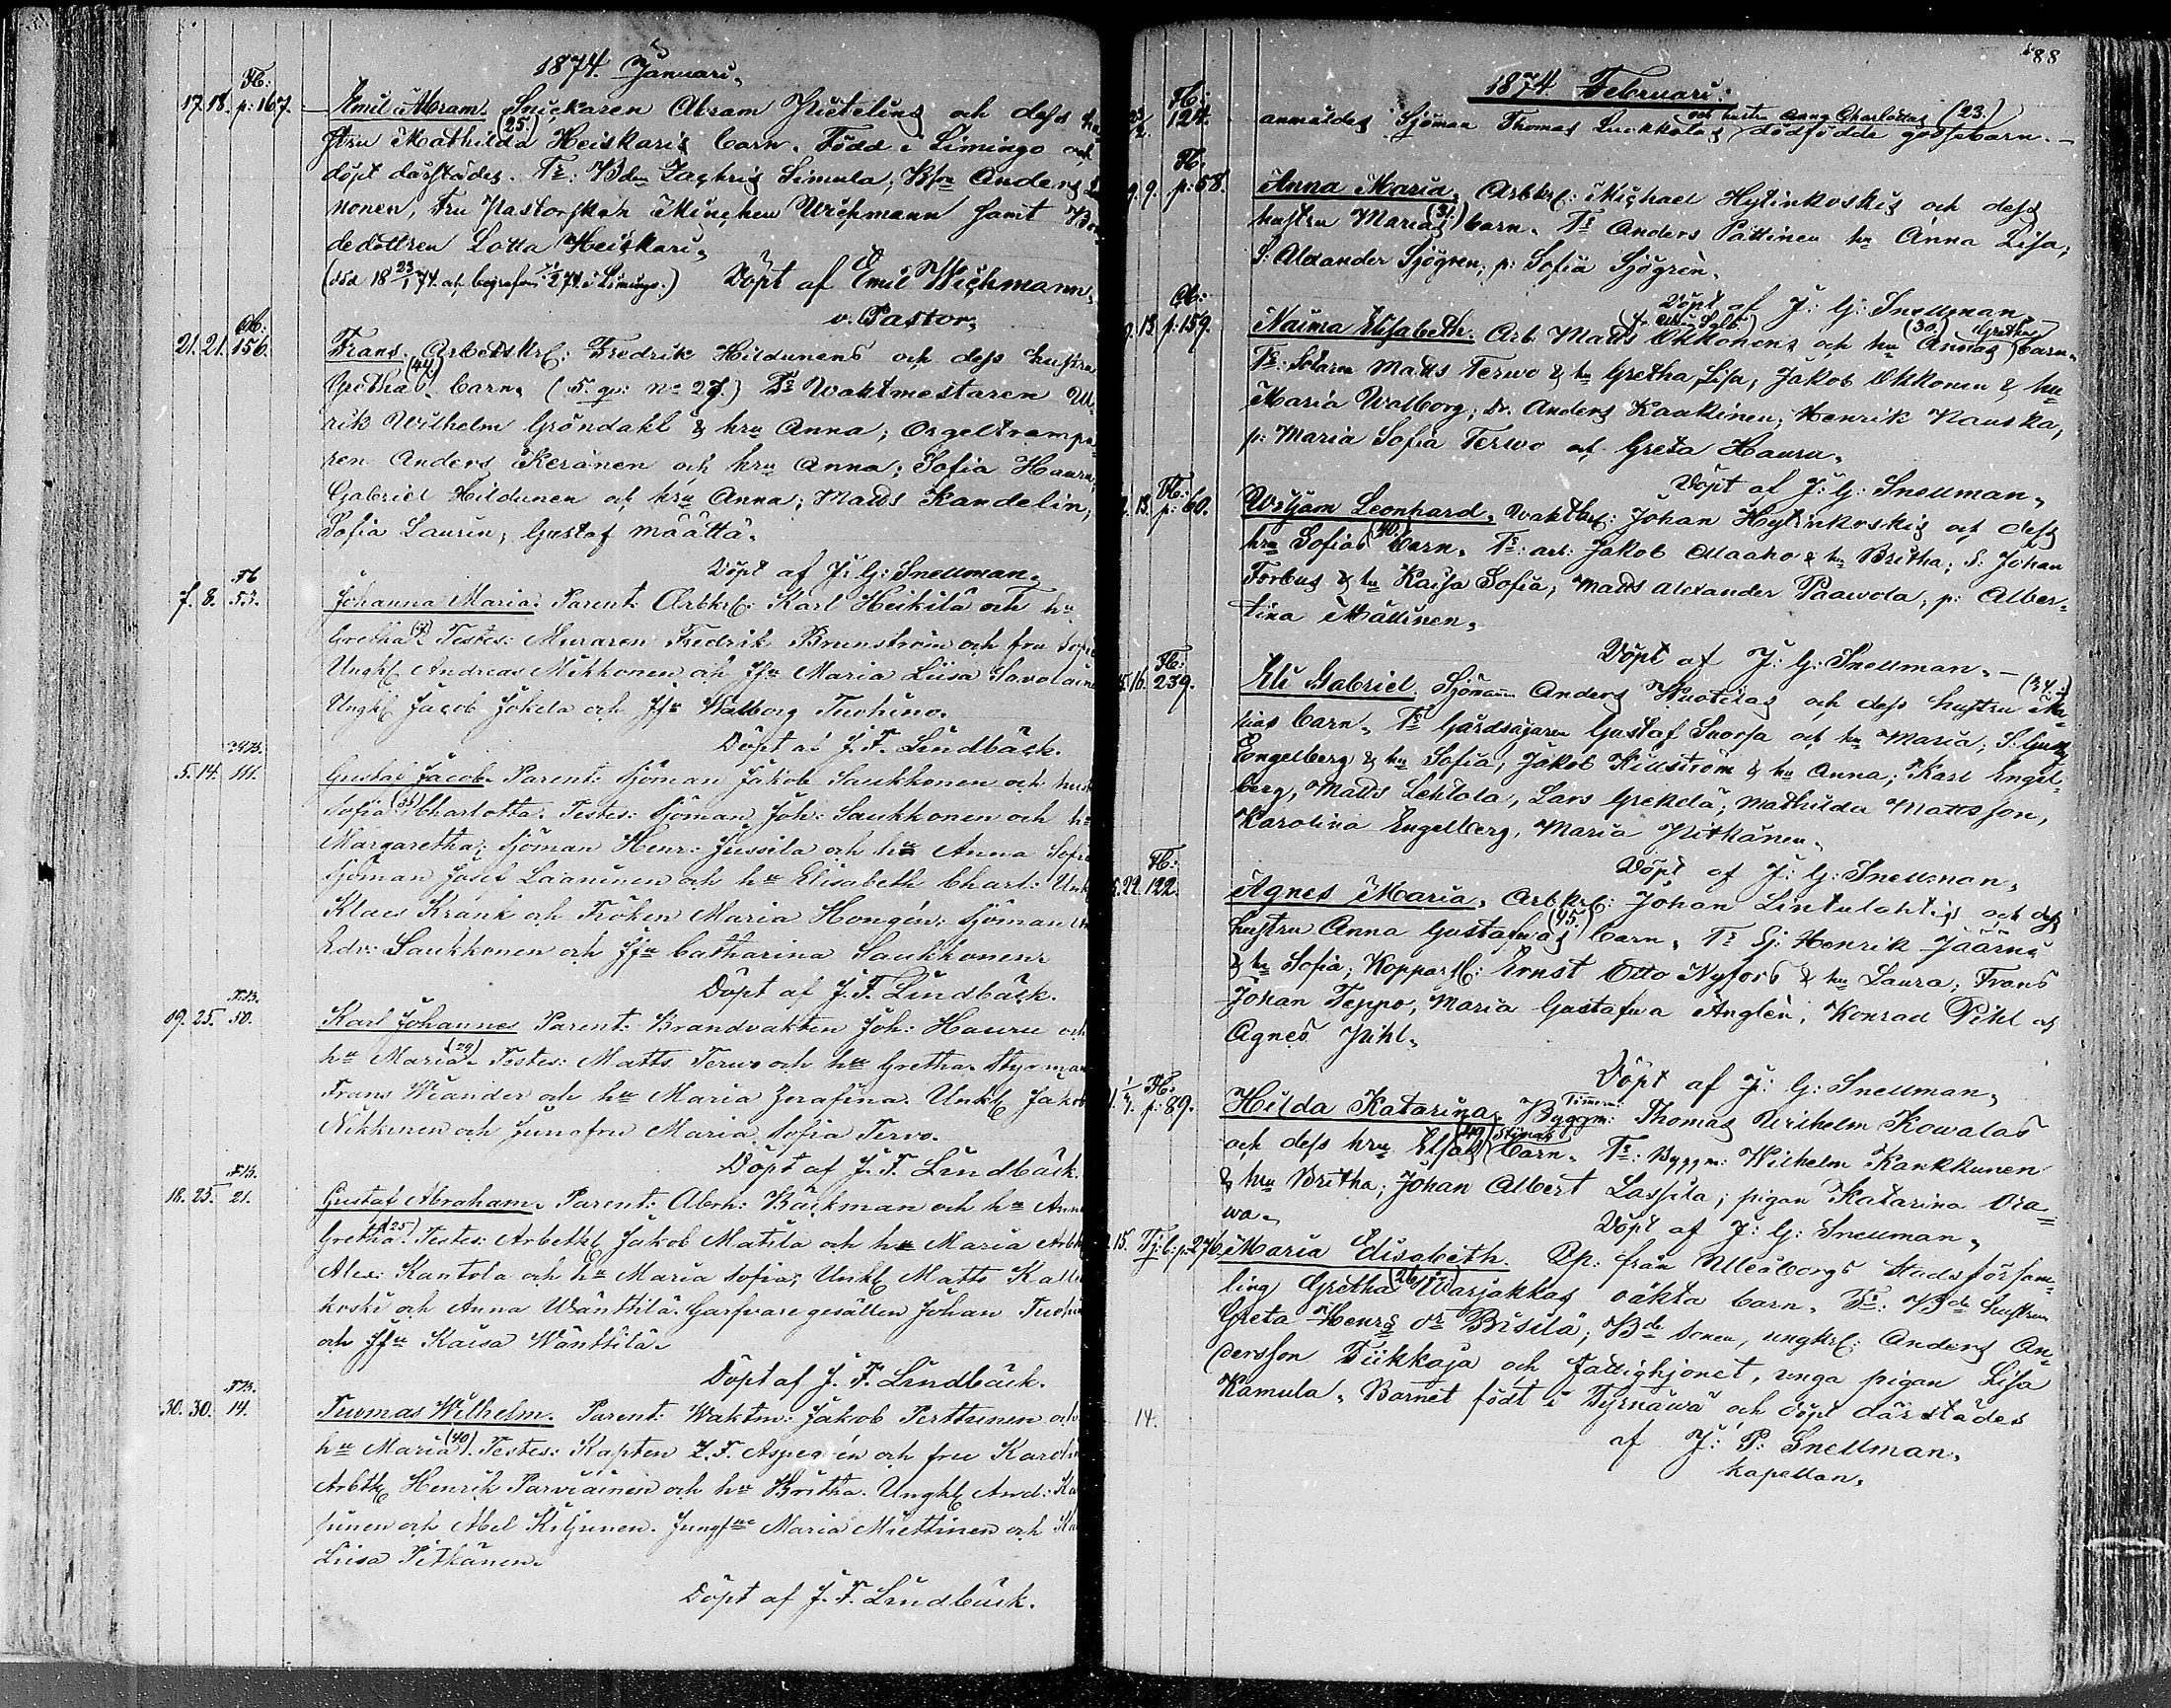 1874. Januari.
Fb:
17. 18. p: 167.
Emil Abram. Snickaren Abram Hietelins och dess hu
stru Mathilda (25.) Heiskaris barn. Född i Limingo och
döpt därstädes. Fr: Bden Zachris Simula, Bson Anders
nonen, Fru Pastorskan Minchen Wichmann samt Bon
dedottren Lotta Heiskari.
(död 18 23/1 74. och begrafven 1/2 74. i Limingo.) Döpt af Emil Wichmann,
v. Pastor.
21. 21. 156.
Frans. Arbetskrl: Fredrik Hildunens och dess hustru
Gretha (44) barn. (5. gr: No 27.) Fr Waktmestaren Ul
rik Wilhelm Gröndahl & hru Anna; Orgeltrampa
ren Anders Keränen och hru Anna; Sofia Hauru,
Gabriel Hildunen och hru Anna; Matts Kandelin,
Sofia Laurin, Gustaf Määttä.
Döpt af J: G: Snellman.
Fb
7. 8. 53.
Johanna Maria. Parent. Arbkrl: Karl Heikilä och hu
Gretha. Testes: Muraren Fredrik Brunström och fru Sofia
Ungkl Andreas Mikkonen och Jfr Maria Liisa Savolaine
Ungkl Jacob Jokela och Jfr Walborg Tuohino.
Döpt af J. F. Lindbäck.
5. 14. 111.
Gustaf Jacob. Parent: Sjöman Jakob Saukkonen och hust
Sofia (35) Charlotta. Testes: Sjöman Joh: Saukkonen och hu
Margaretha; Sjöman Henr: Jussila och hu Anna Sofia
Sjöman Josef Laaninen och hu Elisabeth Charl: Unk
Klaes Krank och Fröken Maria Hongén: Sjöman
Edv: Saukkonen och Jfru Catharina Saukkonen.
Döpt af J. F. Lindbäck.
F.B.
09. 25. 50.
Karl Johannes Parent: Brandvakten Joh: Hauru och
hu Maria (29). Testes: Matts Tervo och hu Gretha. Styrman
Frans Wiander och hu Maria Zerafina. Unkl Jakob
Nikkinen och Jungfru Maria Sofia Tervo.
Döpt af J. F. Lindbäck.
F.B.
18. 25. 21.
Gustaf Abraham. Parent: Abrh: Bäckman och hu Anna
Gretha (25). Testes: Arbetkl Jakob Matila och hu Maria Arbk
Alex: Kantola och hu Maria Sofia; Unkl Matts Kalli
koski och Anna Wänttilä. Garfvaregesällen Johan Tuohin
och Jfru Kaisa Wänttilä.
Döpt af J. F. Lindbäck.
F.B.
30. 30. 14.
Tuomas Wilhelm. Parent: Waktm: Jakob Perttunen och
hu Maria (40). Testes: Kapten Z. F. Aspegrén och fru Karolin
Arbtk Henrik Parviainen och hu Britha. Ungkl And: Ka
sunen och Abel Kiljunen. Jungfru Maria Miettinen och Ka
Liisa Pitkänen.
Döpt af J. F. Lindbäck.
88
1874 Februari.
Fb:
124.
och hustru Anna Charlottas (23.)
anmäldes Sjöman Thomas Luokkolas dödfödde gossebarn. –
Fb.
9. 9. p: 58.
Anna Maria. Arbkrl: Michael Hytinkoskis och dess
hustru Marias (31.) barn. Fr Anders Pättinen hu Anna Lisa,
S: Alexander Sjögren; p: Sofia Sjögren.
Döpt af J: G: Snellman.
13. p: 159.
Naima Elisabeth. Arb: Matts Okkonens och hu Annas (30.) Grethas barn.
Fr: Sotaren Matts Terwo & hu Gretha Lisa; Jakob Okkonen & hu
Maria Walborg; Dr. Anders Kaakinen; Henrik Nauska,
p: Maria Sofia Terwo och Greta Hauru.
Döpt af J: G: Snellman.
Fb:
13. p: 60.
Wiljam Leonhard. Waktkrl: Johan Hytinkoskis och dess
hru Sofias (40.) barn. Fr: arb: Jakob Maaho & hu Britha; S: Johan
Forbus & hu Kaisa Sofia; Matts Alexander Paawola; p: Alber-
tina Mättinen.
Döpt af J: G: Snellman. –
Fb:
15. 16. 239.
Eli Gabriel. Sjöman Anders Huotilas och dess hustru Ma (34.)
rias barn. Fr Gårdsägaren Gustaf Snorsa och hu Maria; S: Gust
Engelberg & hu Sofia; Jakob Kidström & hu Anna; Karl Engel-
berg, Matts Lehtola, Lars Grekelä; Mathilda Mattsson,
Karolina Engelberg, Maria Pitkänen.
Döpt af J: G: Snellman.
Fb:
22. 122.
Agnes Maria. Arbkrl: Johan Lintulahtis och dess
hustru Anna Gustafvas (45.) barn. Fr Sj: Henrik Jäärni
& hu Sofia; Kopparsl: Ernst Otto Nyfors & hu Laura; Frans
Johan Teppo; Maria Gustafva Änglén; Konrad Pihl och
Agnes Pihl.
Döpt af J: G: Snellman.
Fb:
p: 89.
Hilda Katarina. Timm: Byggm: Thomas Wirilhelm Kowalas
och dess hru Elsas (40) Stinas barn. Fr: Byggm: Wilhelm Kankkunen
& hru Britha; Johan Albert Lassila; pigan Katarina Ora-
wa. Döpt af J: G: Snellman.
15. Tj: b: p: 276.
Maria Elisabeth. Pp: från Uleåborgs Stadsförsam-
ling Gretha (26 år) Warjakkas oäkta barn. Fr: Bde hustrun
Greta Henrs dr Pisilä; Bde sonen, ungkrl: Anders An-
dersson Tiikkaja och fattighjonet, unga pigan Lisa
Kamula. Barnet födt i Tyrnäwä och döpt därstädes
14.
af J: P: Snellman.
kapellan.